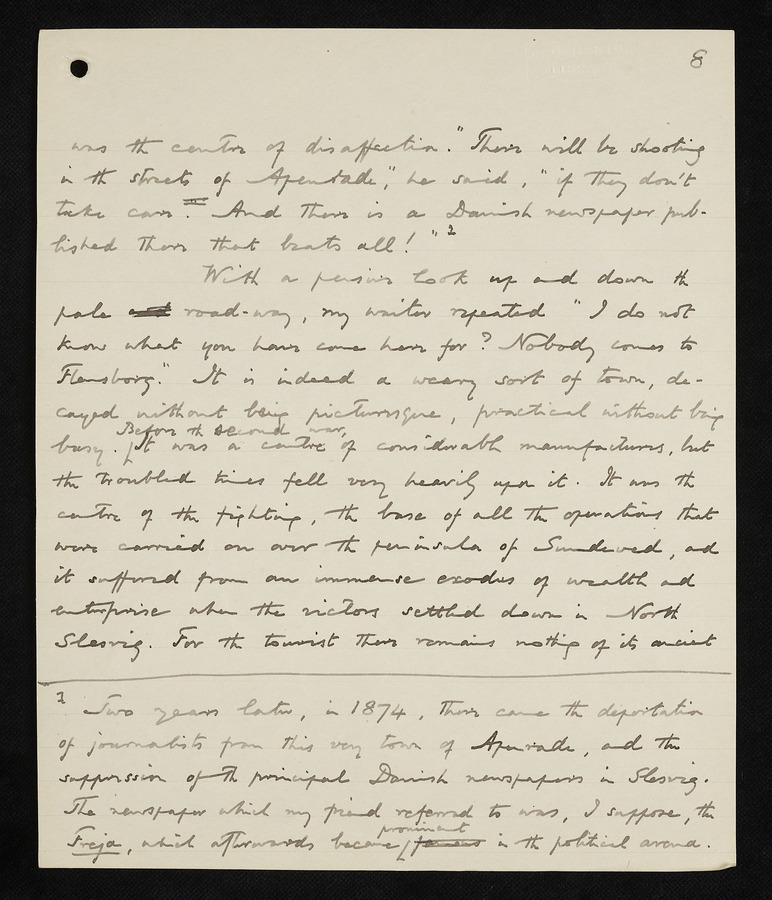 8
was th centre of disaffection." "There will be shooting
in th streets of Apenrade," he said, "if they don't
take care. And there is a Danish newspaper pub-
lished there that beats all!" 2
With a pensive look up and down th
pale and road-way, my waiter repeated "I do not
know what you have come here for? Nobody comes to
Flensborg." It is indeed a weary sort of town, de-
cayed without being picturesque, practical without being
Before th second war,
busy. It was a centre of considerable manufactures, but
the troubled times fell very heavily upon it. It was th
centre of th fighting, th base of all th operations that
were carried on over th peninsula of Sundeved, and
it suffered from an immense exodus of wealth and
enterprise when the victors settled down in North
Slesvig. For th tourist there remains nothing of its ancient
2 Two years later, in 1874, there came th deportation
of journalists from this very town of Apenrade, and the
suppression of th principal Danish newspapers in Slesvig.
The newspaper which my friend referred to was, I suppose, the
prominent
Freja, which afterwards became famous in th political arena.